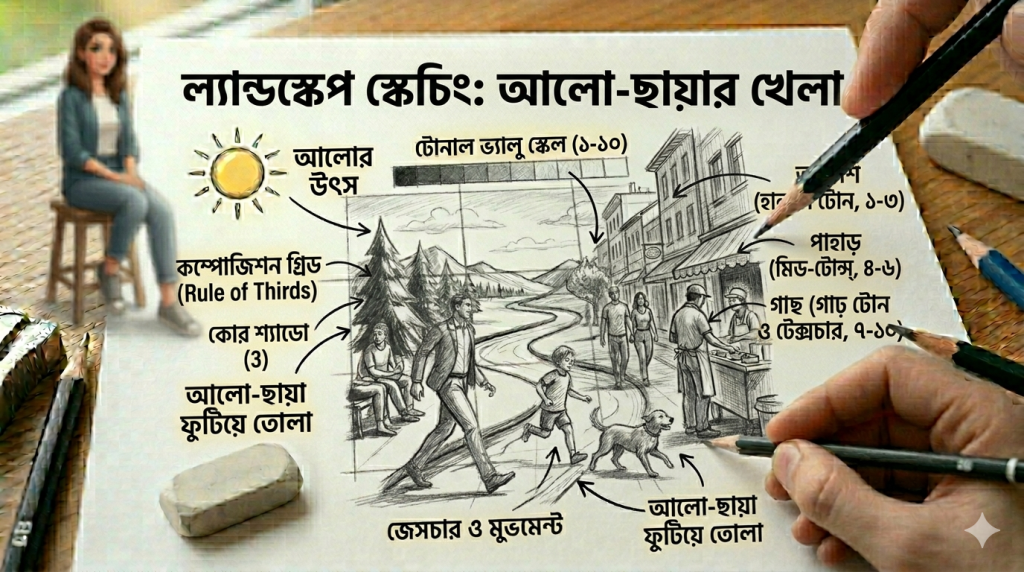 ল্যান্ডস্কেপ স্কেচিং: আলো-ছায়ার খেলা
আলোর
উৎস
টোনাল ভ্যালু স্কেল (১-১০)
টোন, ১-৩)
কম্পোজিশন গ্রিড
(Rule of Thirds)
পাহাড়
(মিড-টোন্স, ৪-৬)
কোর শ্যাডো
(3)
গাছ (গাঢ় টোন
ও টেক্সচার, ৭-১০)
আলো-ছায়া
ফুটিয়ে তোলা
জেসচার ও মুভমেন্ট
আলো-ছায়া
ফুটিয়ে তোলা